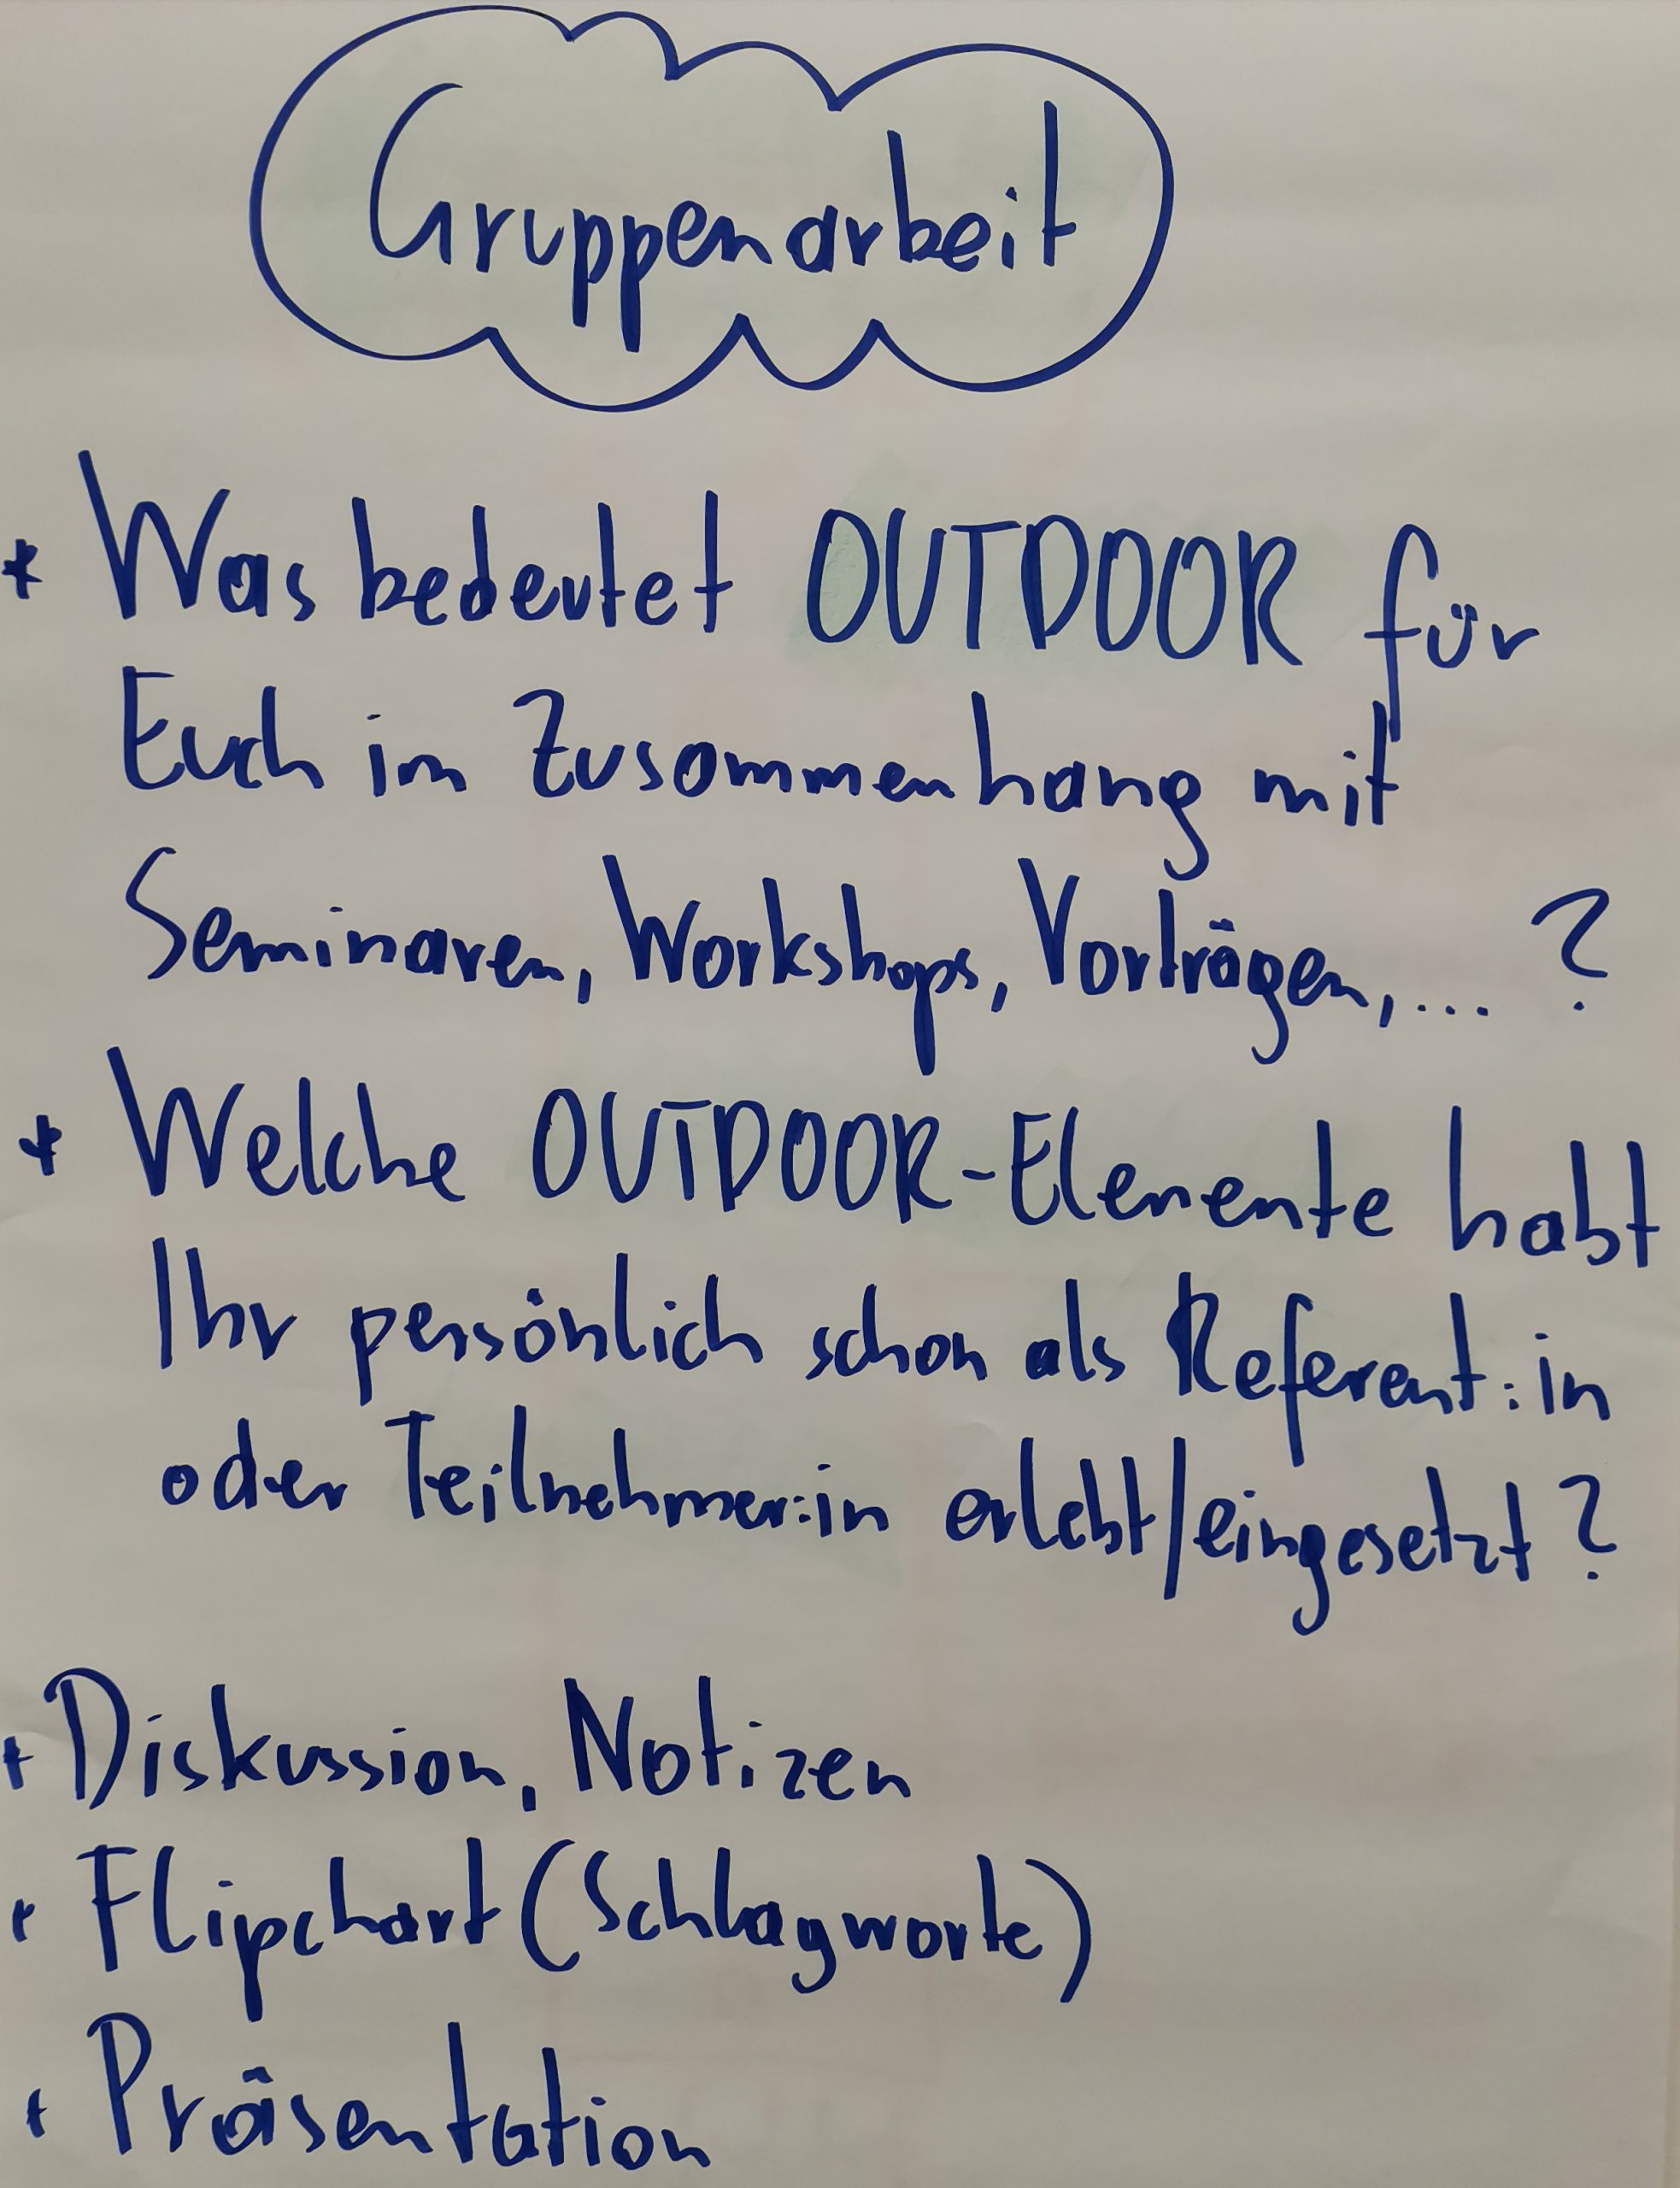 Gruppenarbeit
* Was bedeutet OUTDOOR für
Euch im Zusammenhang mit
Seminaren, Workshops, Vorträgen,... ?
* Welche OUTDOOR-Elemente habt
Ihr persönlich schon als Referent:in
oder Teilnehmer:in erlebt/eingesetzt?
+ Diskussion, Notizen
+ Flipchart (Schlagworte)
+ Präsentation